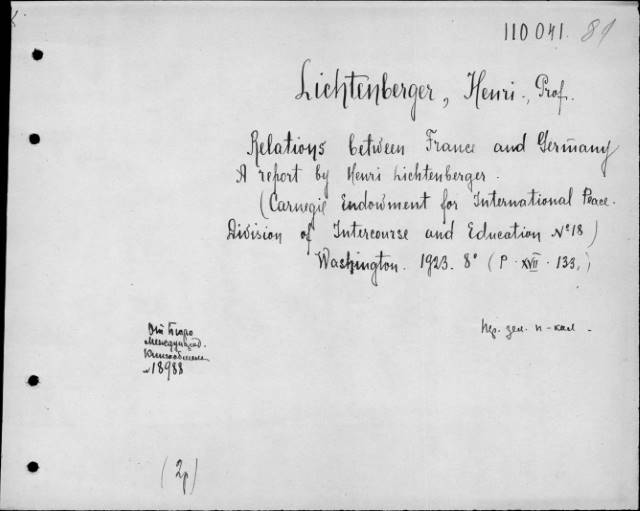 110 041. 81
Lichtenberger, Henri., Prof.
Relations between France and Germany
A report by Henri Lichtenberger.
(Carnegie Endowment for International Peace.
Division of Intercourse and Education №18)
Washington. 1923. 8° (P. XVII. 133.)
От Бюро
Международ.
Книгообмен.
№18988
пер. зел. п-кал.
(2р)